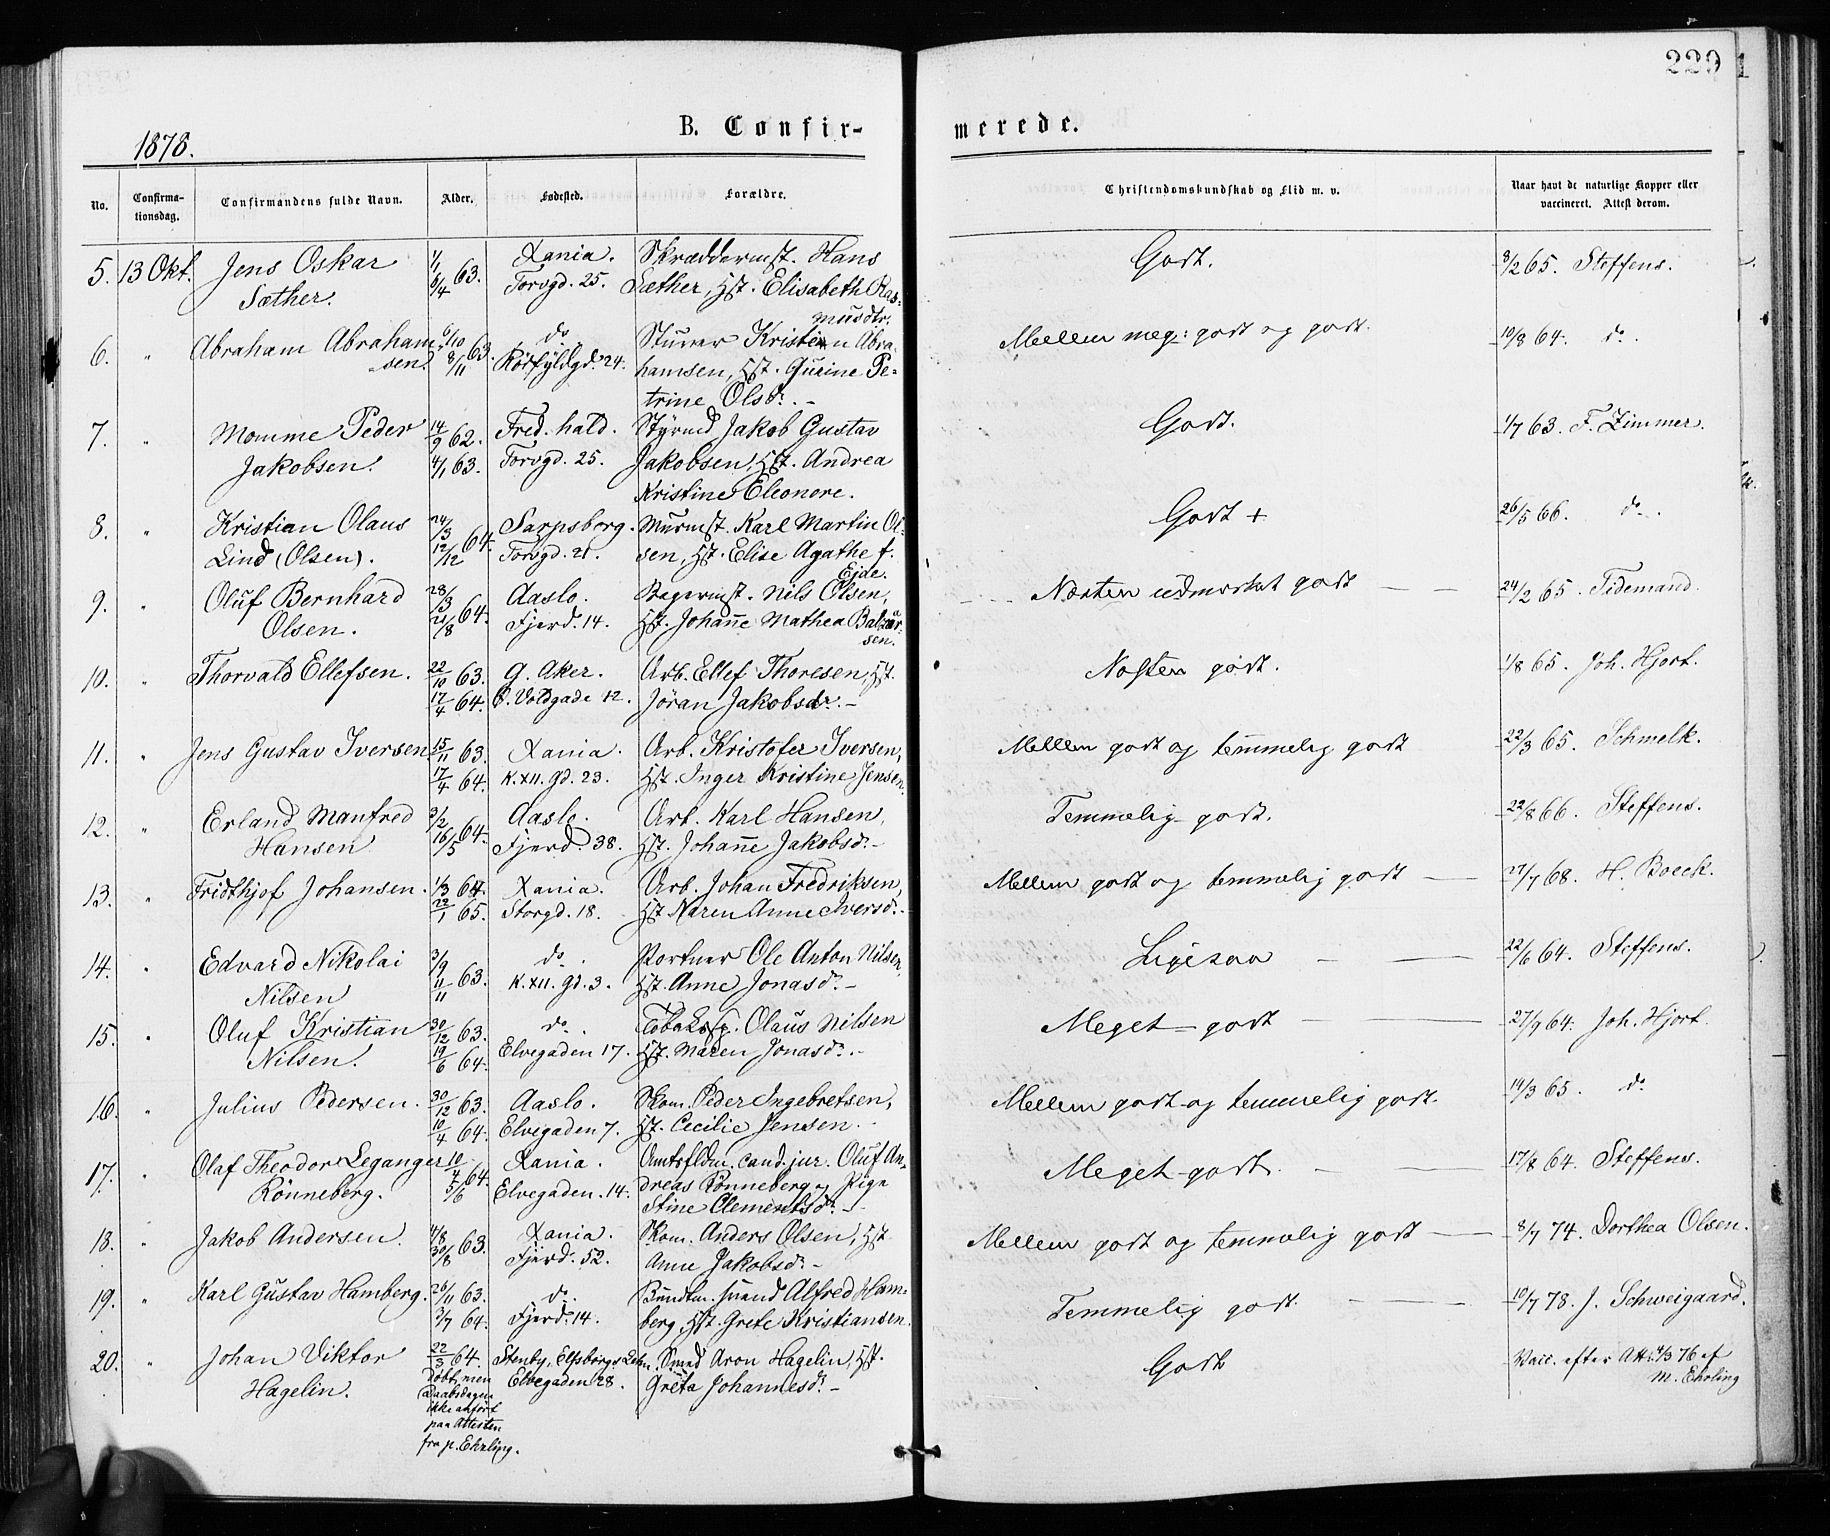 229
1878.
B. Confir-
merede.
No.
Confirma-
tionsdag.
Confirmandens fulde Navn.
Alder.
Fødested.
Forældre.
Christendomskundskab og Flid m. v.
Naar havt de naturlige Kopper eller
vaccineret. Attest derom.
5. 13 Okt. Jens Oskar 1/1 63. Xania. Skræddermst. Hans Godt. 8/2 65. Steffens.
Sæther. 6/4 Torvgd. 25. Sæther, Hst. Elisabeth Ras-
musdtr.
6. " Abraham Abraham 6/10 63. do Stuver Kristian Abra- Mellem meg: godt og godt. 10/8 64. do.
sen. 8/11 Rödfyldgd. 24. hamsen, Hst. Gurine Pe-
trine Olsdr. -
7. " Momme Peder 14/9 62. Fred. hald. Styrmd Jakob Gustav Godt. 1/7 63. F. Zimmer.
Jakobsen. 4/1 63. Torvgd. 25. Jakobsen, Hst. Andrea
Kristine Eleonore.
8. " Kristian Olaus 24/3 64. Sarpsborg. Murmst. Karl Martin Ol- Godt + 26/5 66. do.
Lind (Olsen). 12/12 Torvgd. 21. sen, Hst. Elise Agathe f.
Eide.
9. " Oluf Bernhard 28/3 64. Aaslo. Bagermst. Nils Olsen, Næsten udmærket godt 24/2 65. Tidemand.
Olsen. 21/8 Fjerd. 14. Hst. Johanne Mathea Balzar-
sen.
10. " Thorvald Ellefsen. 22/10 63. G. Aker. Arb. Ellef Thoresen, Hst. Næsten godt. 1/8 65. Joh. Hjort.
17/4 64. Ö. Voldgade 12. Jöran Jakobsdr. -
11. " Jens Gustav Iversen 15/11 63. Xania. Arb. Kristofer Iversen, Mellem godt og temmelig godt 22/3 65. Schmelk.
17/4 64. K. XII. Gd. 23. Hst. Inger Kristine Jensen.
12. " Erland Manfred 3/2 64. Aaslo. Arb. Karl Hansen, Temmelig godt. 22/8 66. Steffens.
Hansen 16/5 Fjerd. 38. Hst. Johanne Jakobsdr. -
13. " Fridthjof Johansen. 1/3 64. Xania. Arb. Johan Fredriksen, Mellem godt og temmelig godt 27/7 68. H. Boeck.
22/1 65. Storgd. 18. Hst. Karen Anne Iversdr. -
14. " Edvard Nikolai 3/9 63. do Portner Ole Anton Nilsen, Ligesaa 22/6 64. Steffens.
Nilsen 11/11 K. XII. Gd. 3. Hst. Anne Jonasdr. -
15. " Oluf Kristian 30/12 63. do Olaus Nilsen Meget godt 27/9 64. Joh. Hjort.
Nilsen. 19/6 64. Elvegaden 17. Hst. Maren Jonasdr. -
16. " Julius Pedersen. 30/12 63. Aaslo. Skom. Peder Ingebretsen, Mellem godt og temmelig godt. 14/3 65. do
10/4 64. Elvegaden 7. Hst. Cecilie Jensen. -
17. " Olaf Theodor Leganger 10/4 64. Xania. Amtsfldm. cand. jur. Oluf An- Meget godt. 17/8 64. Steffens.
Rönneberg. 5/6 Elvegaden. 14. dreas Rönneberg, Pige
Stine Clementsdr. -
18. " Jakob Andersen. 4/8 63. Xania. Skom. Anders Olsen, Hst. Mellem godt og temmelig godt 8/7 74. Dorthea Olsen.
30/8 Fjerd. 52. Anne Jakobsdr. -
19. " Karl Gustav Hamberg. 26/11 63. do. Bundtm. svend Alfred Ham- Temmelig godt. 10/7 78. J. Schweigaard.
3/7 64. Fjerd. 14. berg, Hst. Grete Kristiansen.
20. " Johan Viktor 22/3 64. Stenby, Elfsborgs Lehn. Smed Aron Hagelin, Hst. Godt Vacc. efter Att. 4/3 76 af
Hagelin. Döbt, men Elvegaden 28. Greta Johannesdr. - M. Ehrling
Daabsdagen
ikke anfört
paa Attesten
fra p. Ehrling.